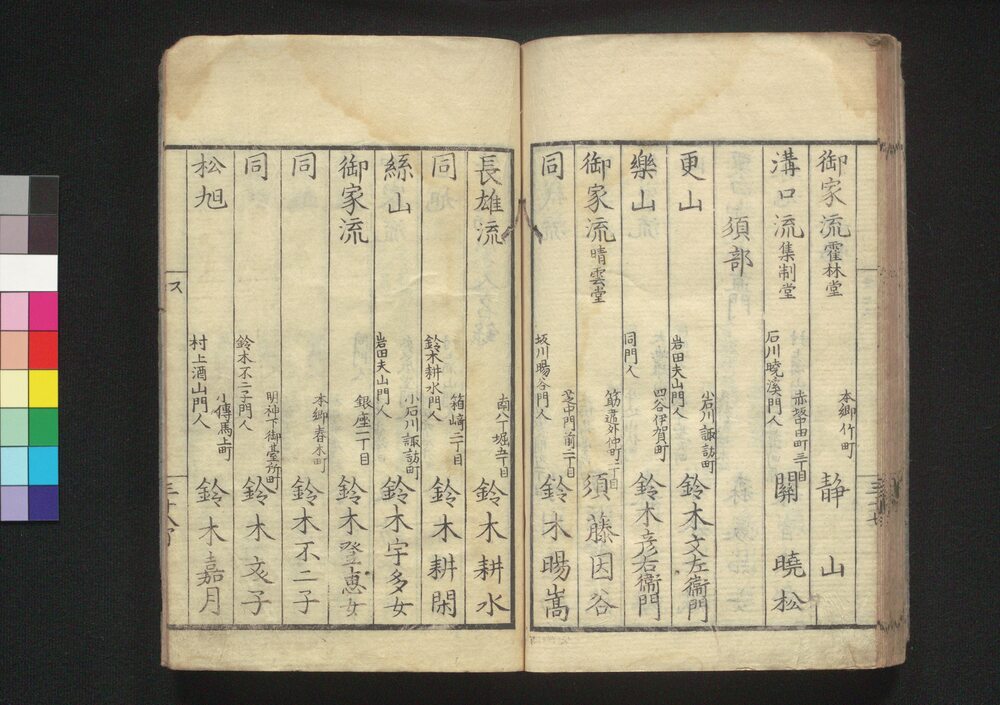 御家流 霍林堂 本郷竹町 静山
溝口流 集制堂 石川曉溪門人 赤坂中田町三丁目 關曉松
須部
更山 岩田夫山門人 小石川諏訪町 鈴木文左衞門
樂山 同門人 四谷伊賀町 鈴木彦右衞門
御家流 晴雲堂 筋違外仲町二丁目 須藤因谷
同 坂川暘谷門人 芝中門前二丁目 鈴木暘嵩
長雄流 南八丁堀五丁目 鈴木耕水
同 鈴木耕水門人 箱崎二丁目 鈴木耕閑
絲山 岩田夫山門人 小石川諏訪町 鈴木宇多女
御家流 銀座二丁目 鈴木登恵女
同 本郷春木町 鈴木不二子
同 鈴木不二子門人 明神下御臺所町 鈴木亥子
松旭 村上酒山門人 小傳馬上町 鈴木嘉月
ス